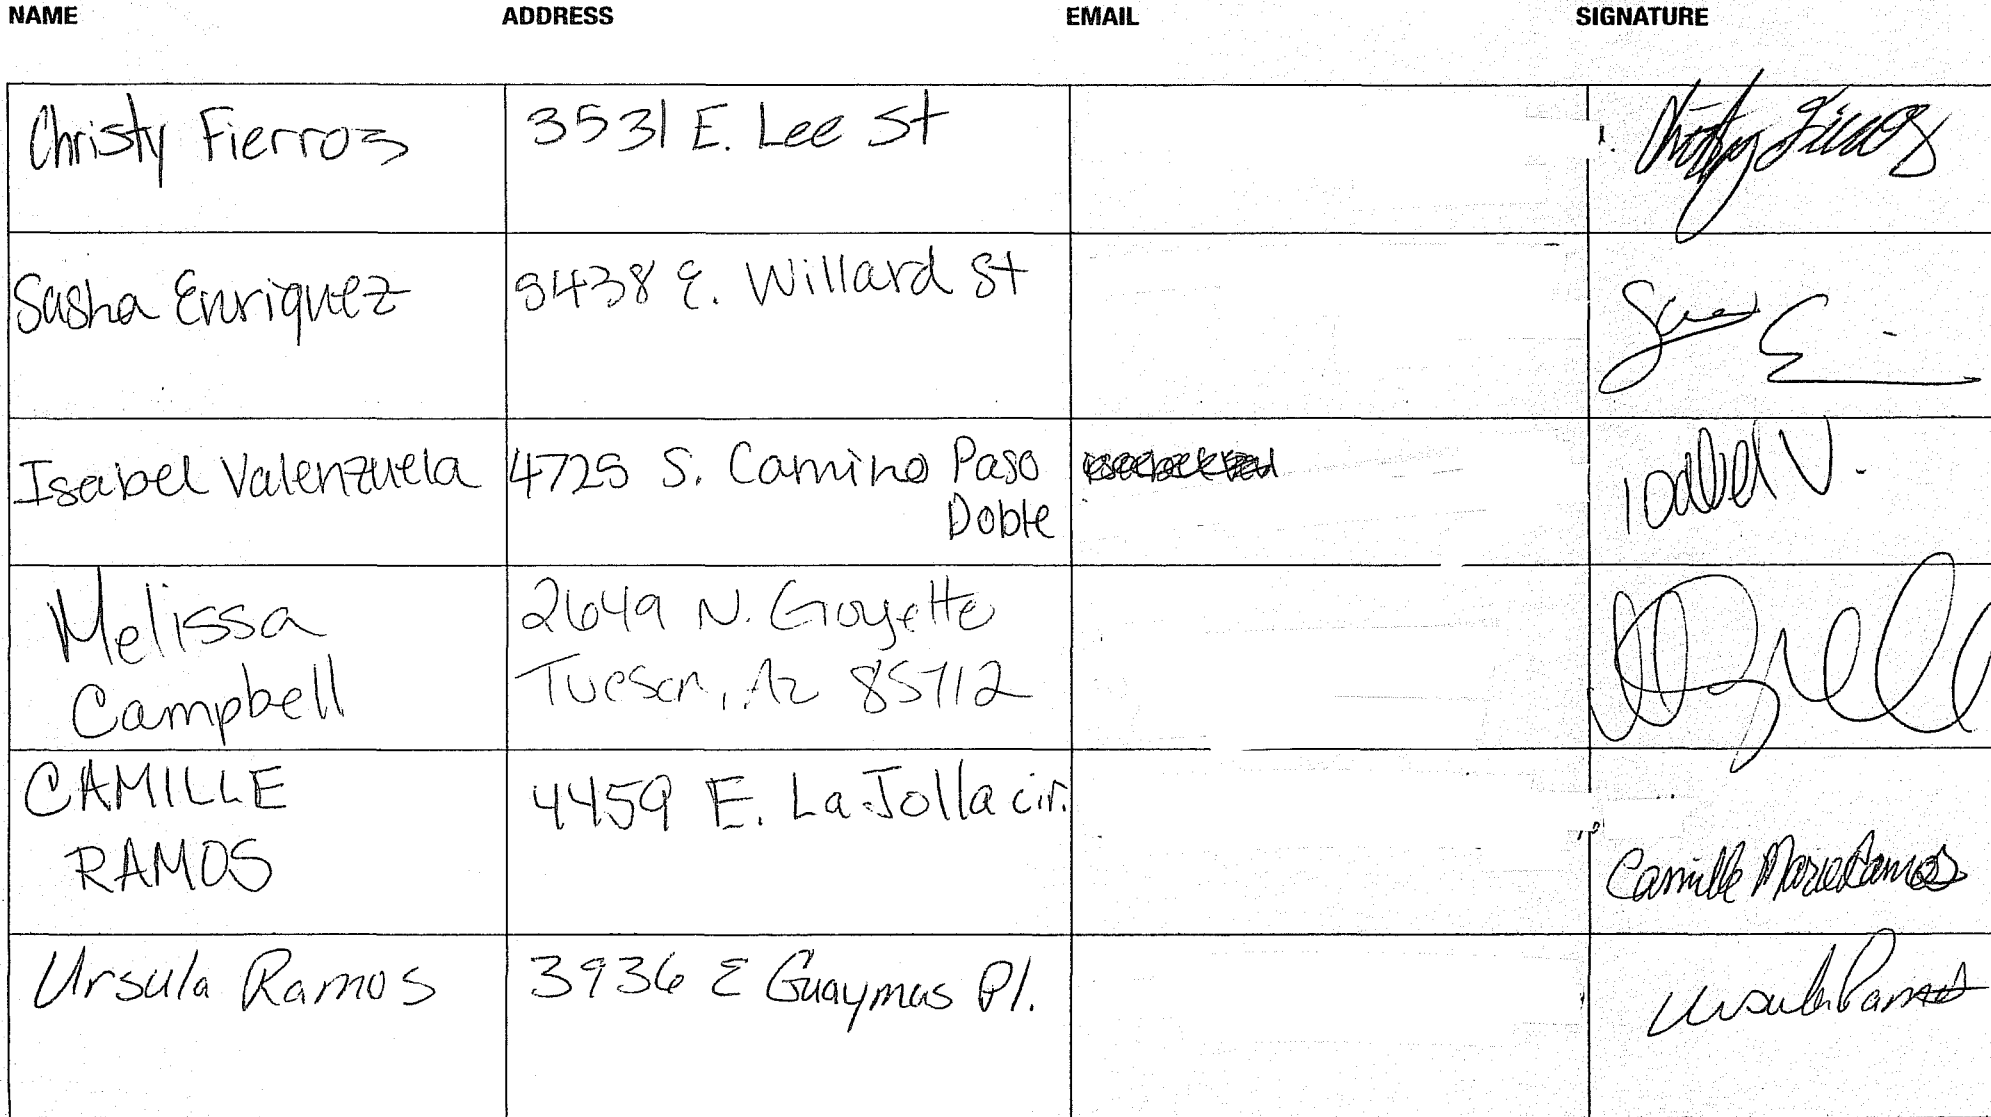 NAME ADDRESS EMAIL SIGNATURE
Christy Fierros 3531 E. Lee St Christy Fierros
Sasha Enriquez 8438 E. Willard St
Isabel Valenzuela 4725 S. Camino Paso Isabel V.
Doble
Melissa 2649 N. Goyette
Campbell Tucson, Az 85712
CAMILLE 4459 E. La Jolla cir.
RAMOS Camille Marie Ramos
Ursula Ramos 3936 E Guaymas Pl. Ursula Ramos